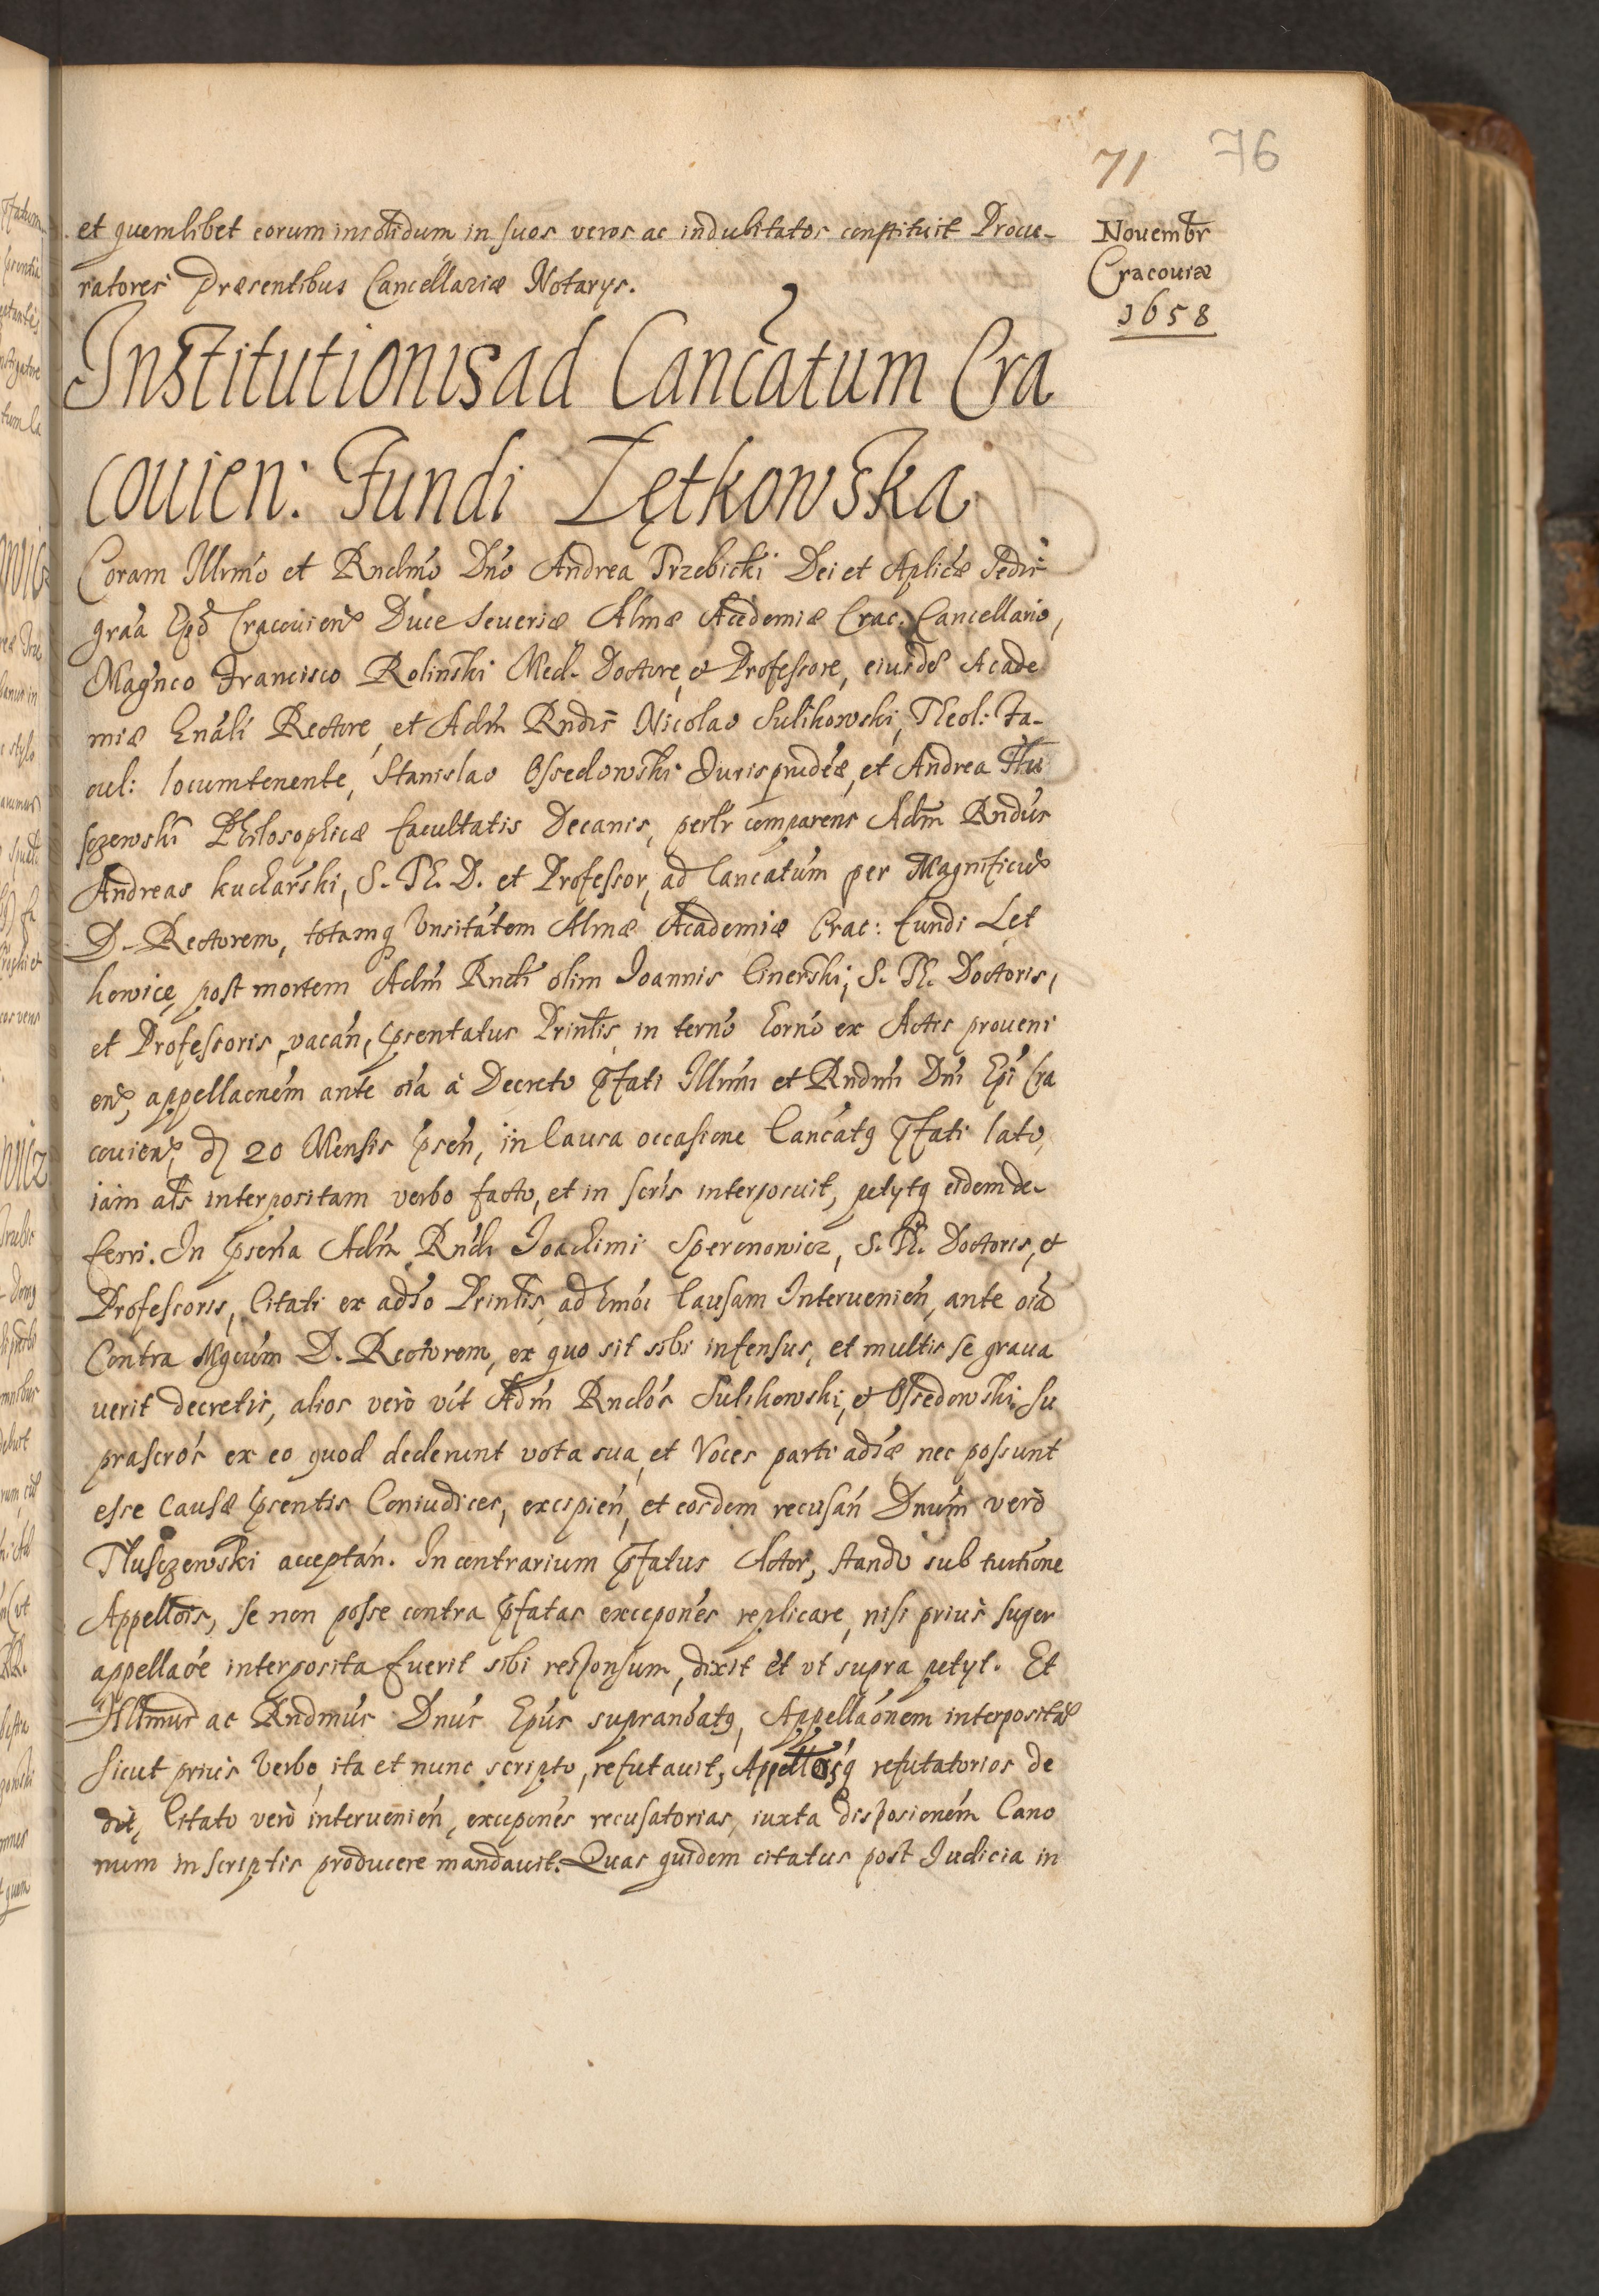 71 76
Nouembr
Cracouiæ
1658
et quemlibet eorum insolidum in suos veros ac indubitatos constituit Procu-
ratores Præsentibus Cancellariæ Notarys.
Institutionis ad Cancãtum Cra
couien: Fundi Lętkowska
Coram Illrmo et Rndmo Dno Andrea Trzebicki Dei et Aplicæ Sedis
graã Epõ Cracouien Duce Seueriæ Almæ Academiæ Crac: Cancellario,
Magnco Francisco Rolinski Med. Doctore, et Professore, eiusde Acade
miæ Gnali Rectore, et Adm Rndis Nicolao Sulikowski, Theol: Fa-
cul: locumtenente, Stanislao Ossedowski Jurisprudeæ, et Andrea Thu
sczewski Philosophicæ facultatis Decanis, perlr comparens Adm Rndus
Andreas Kucharski, S. Th. D. et Professor, ad Cancatum per Magnificu
D. Rectorem, totamq Vnsitatem Almæ Academiæ Crac: fundi Let
kowicę post mortem Adm Rndi olim Joannis Cinerski, S. Th. Doctoris,
et Professoris, vacan, psentatus Printis in termo horno ex Actis proueni
en, appellaonem ante oia à Decreto pfati Illrmi et Rndmi Dni Epi Cra
couien, d 20 Mensis psen, in Causa occasione Cancatq pfati lato,
iam als interpositam verbo facto, et in scris interposuit, petytq eidem de-
ferri. In psena Adm Rndi Joachimi Speronowicz, S. Th. Doctoris, et
Professoris, Citati ex adso Printis, ad hmoi Causam Interuenien, ante oia
Contra Mgcum D. Rectorem, ex quo sit sibi infensus, et multis se graua
uerit decretis, alios verò vit Adm Rndos Sulikowski, et Ossedowski su
prascros ex eo quod dederunt vota sua, et Voces parti adsæ nec possunt
esse Causæ psentis Coniudices, excipien, et eosdem recusan Dnum verò
Tlusczewski acceptan. In contrarium pfatus Actor, stando sub tuitione
Appellois, se non posse contra pfatas excepones replicare, nisi prius super
appellaoe interposita fuerit sibi responsum, dixit et vt supra petyt. Et
Illmus ac Rndmus Dnus Epus supranoatq, Appellaonem interposita
sicut prius Verbo, ita et nunc scripto, refutauit, Appelloisq refutatorios de
dit, Citato verò interuenien, excepones recusatorias, iuxta disposionem Cano
num in scriptis producere mandauit. Quas quidem citatus post Judicia in